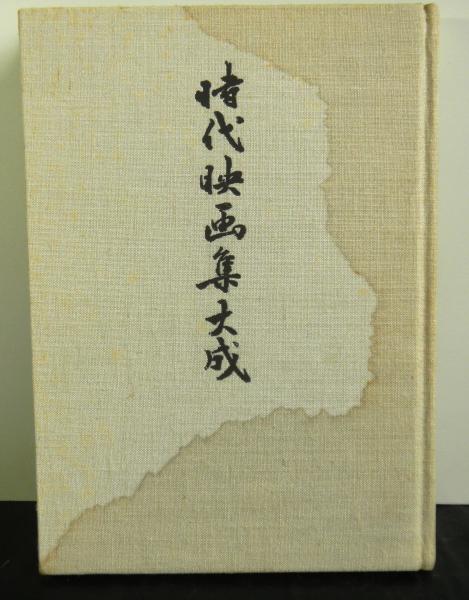 時代映画集大成